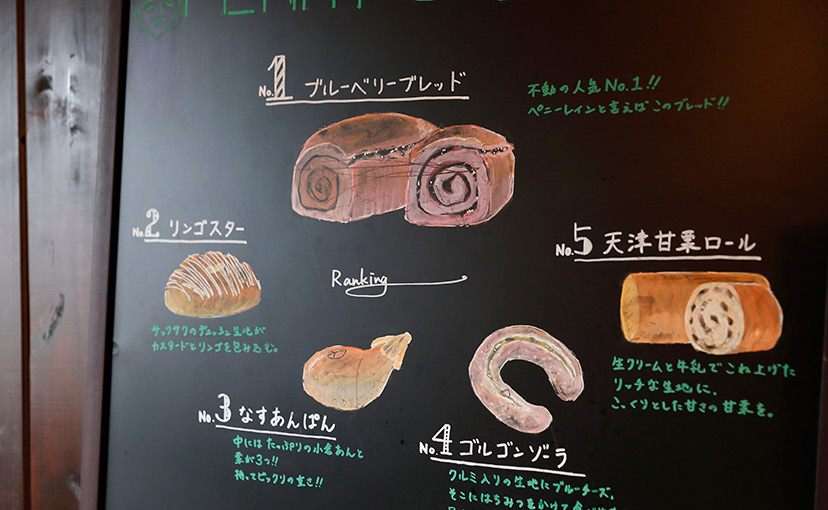 No.1 ブルーベリーブレッド
不動の人気No.1!!
ペニーレインと言えばこのブレッド!!
No.2 リンゴスター
サックサクのデニッシュ生地が
カスタードとリンゴを包み込む。
Ranking
No.5 天津甘栗ロール
生クリームと牛乳でこね上げた
リッチな生地に、
こっくりとした甘さの甘栗を。
No.3 なすあんぱん
中にはたっぷりの小倉あんと
栗が3つ!!
持ってビックリの重さ!!
No.4 ゴルゴンゾラ
クルミ入りの生地にブルーチーズ。
そこにはちみつをかけて